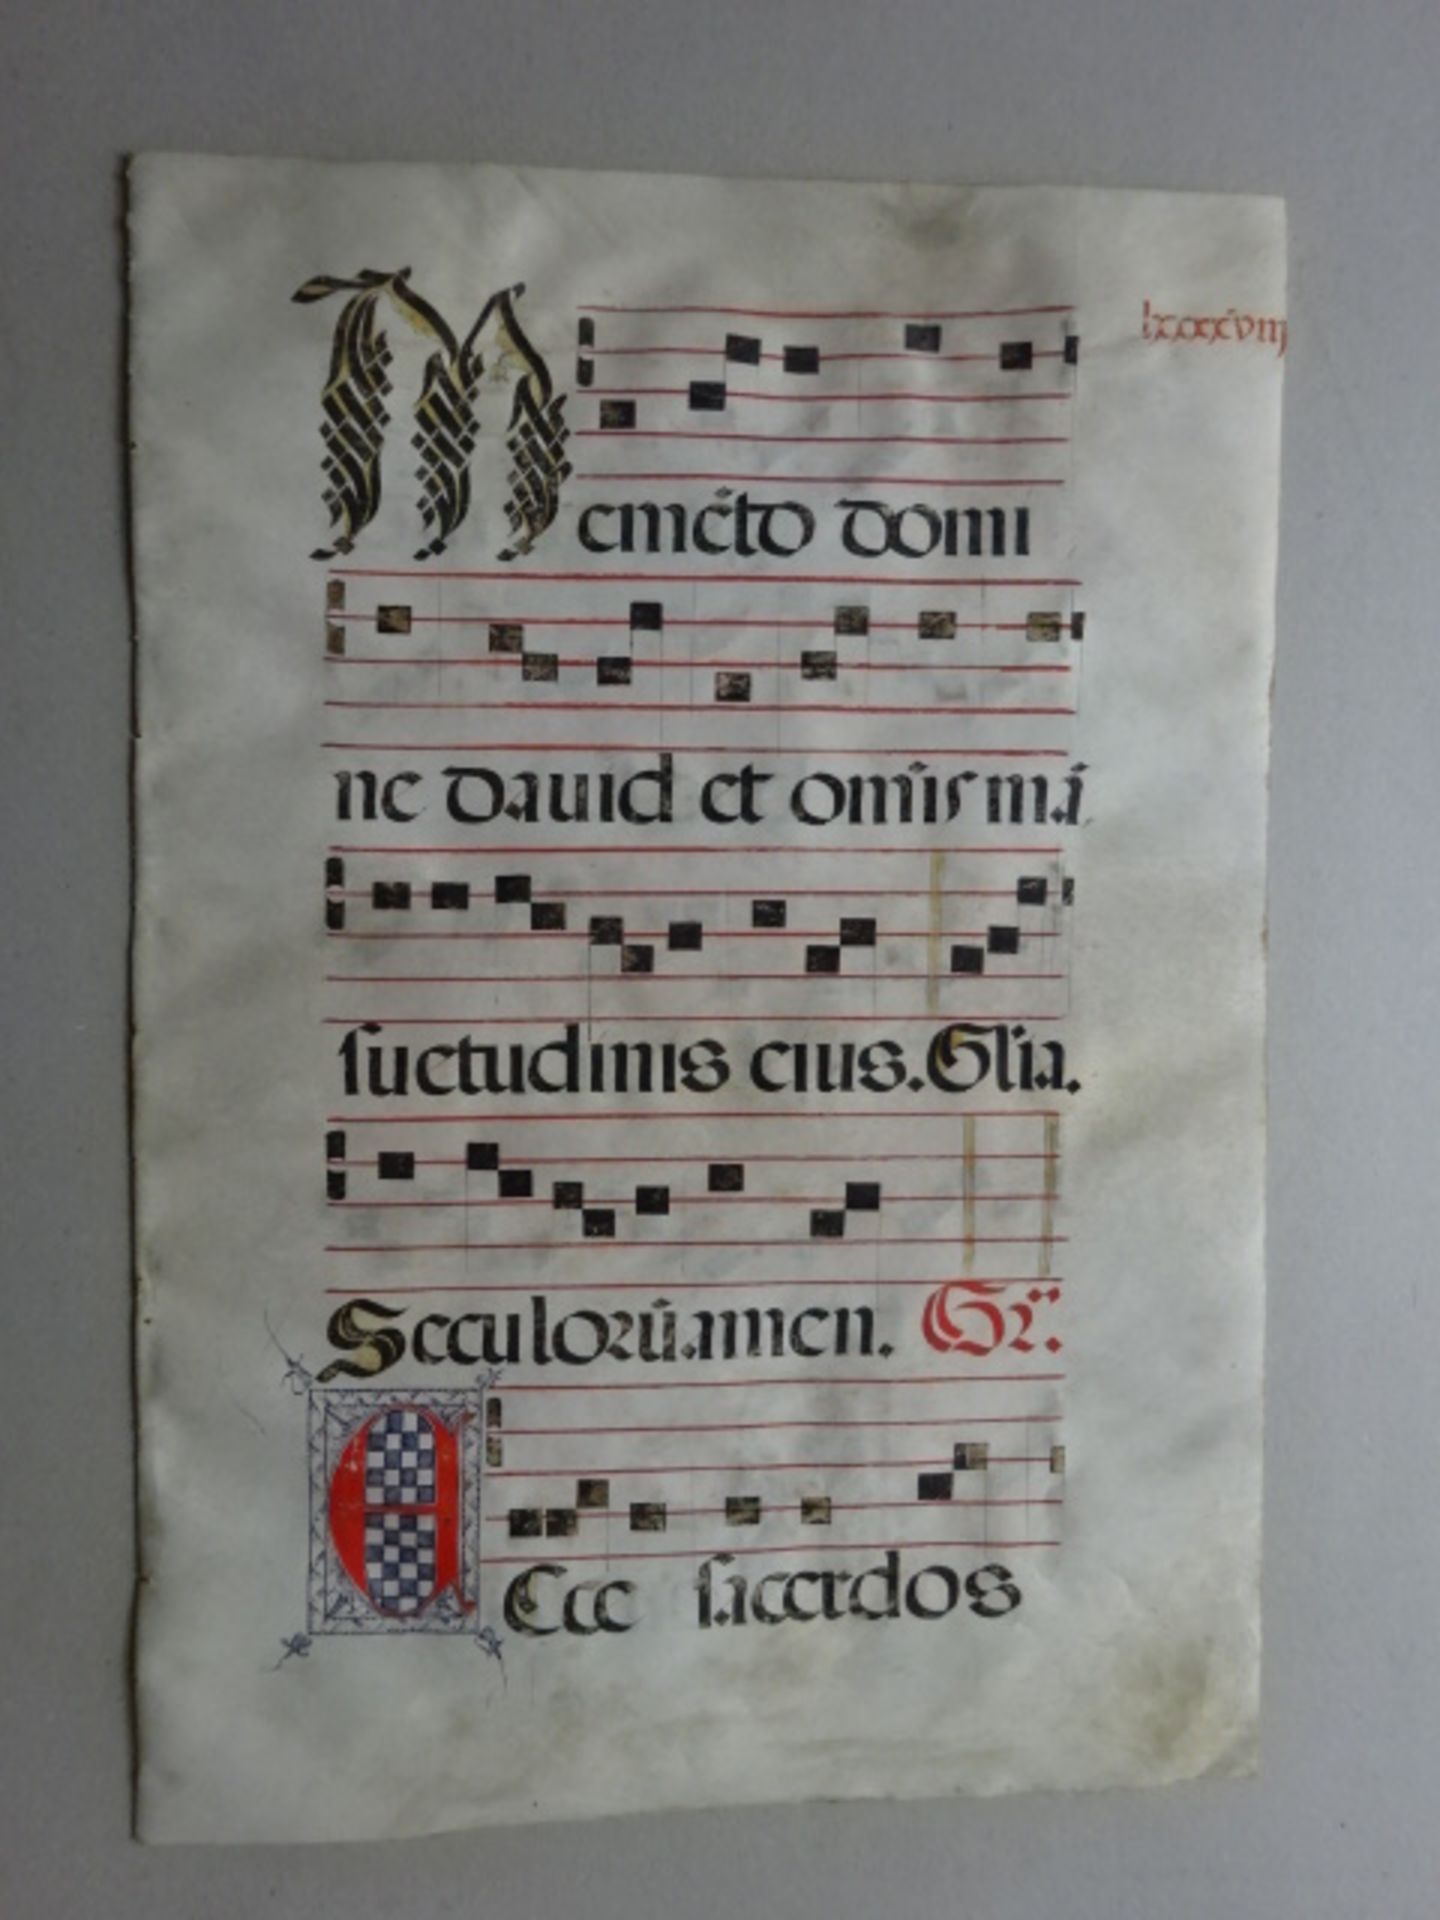 lxxxxviij
Memēto domi
ne dauid et om̄is mā
suetudinis eius. Gl̄ia.
Seculorū.amen. Gr̄.
ECce sacerdos